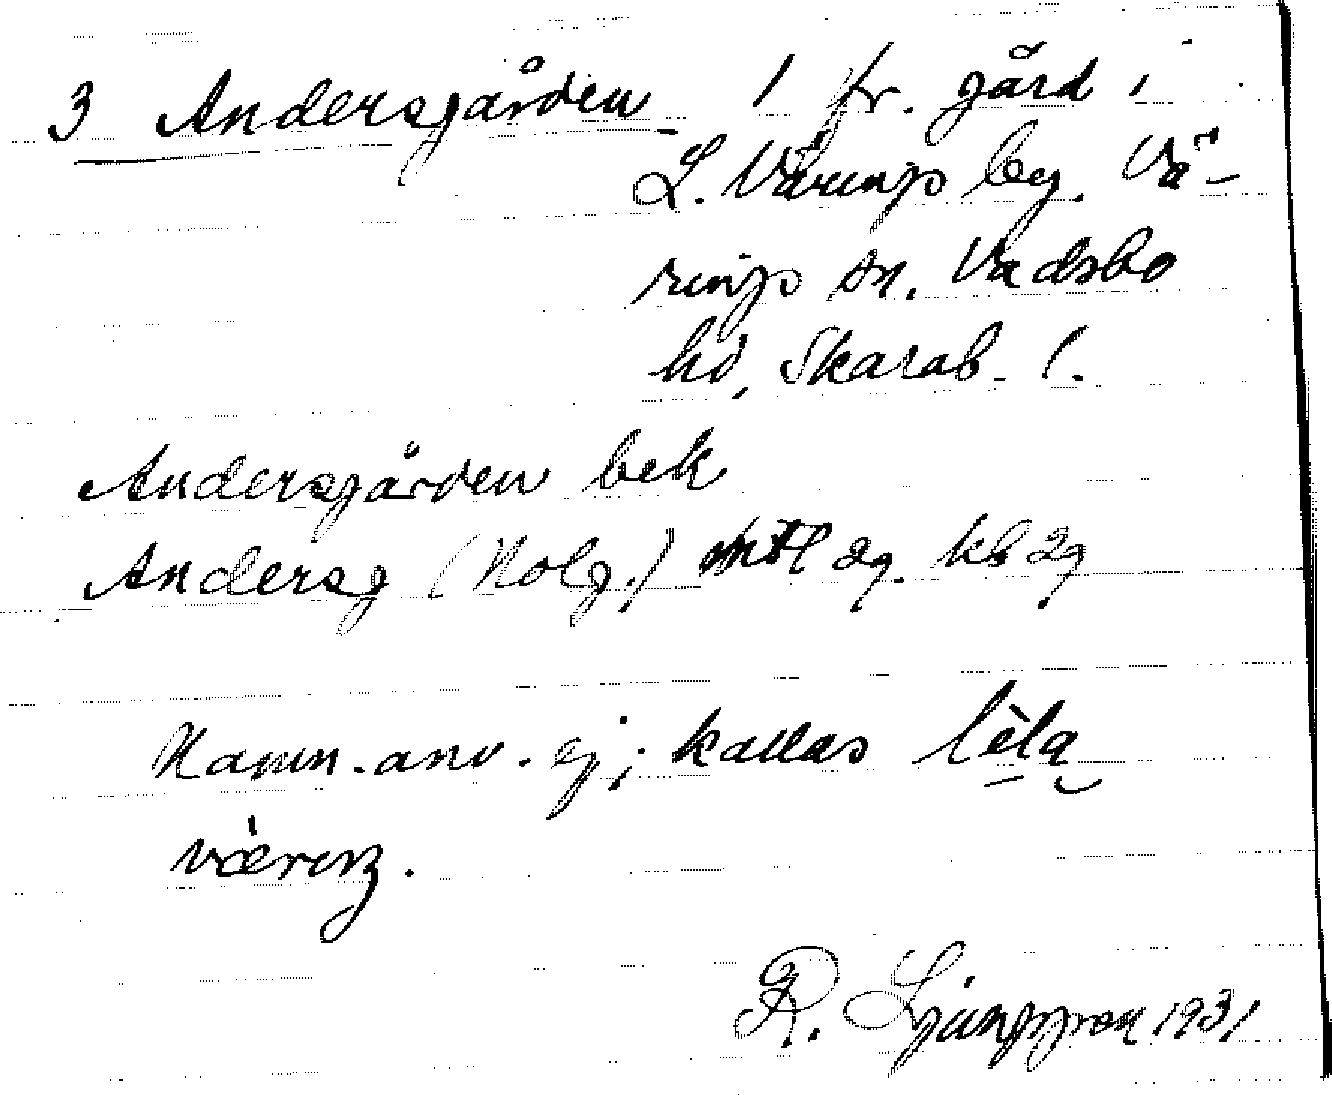 3 Andersgården 1 fr. gård i
L. Värings by. Vä-
rings sn. Vadsbo
hd, Skarab. l.
Andersgården bek
Andersg (Nolg.) mtl 29. kb 29
Namn. anv. ej; kallas lìla
værɪŋ.
R. Ljunggren 1931